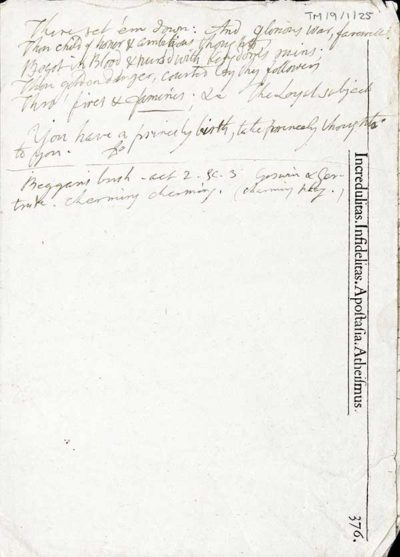 TM 19/1/25
There set 'em down: And glorious War, farewell!
Thou child of honor & ambitious thoughts,
Begot in Blood & nursed with kingdoms ruins:
Thou golden danger, courted by thy followers
Thro' fires & famines, &c The Loyal subject
You have a princely birth, take princely thoughts
to you. Do
Beggars bush - act 2. Sc. 3 Goswin & Ger-
trude. charming charming. (charming Play.)
Incredulitas. Infidelitas. Apoſtaſia. Atheiſmus.
376.